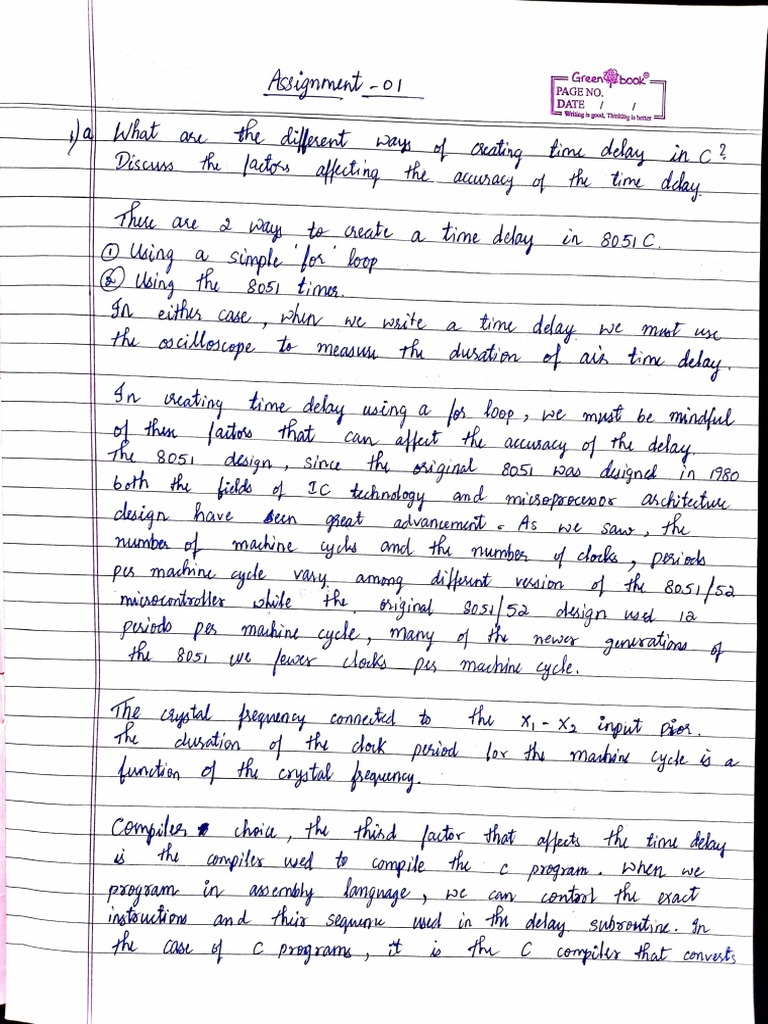 Assignment - 01
Green book
PAGE NO.
DATE / /
Writing is good, Thinking is better
1) a What are the different ways of creating time delay in C?
Discuss the factors affecting the accuracy of the time delay.
There are 2 ways to create a time delay in 8051 C.
① Using a simple 'for' loop
② Using the 8051 timer.
In either case, when we write a time delay we must use
the oscilloscope to measure the duration of air time delay.
In creating time delay using a for loop, we must be mindful
of three factors that can affect the accuracy of the delay.
The 8051 design, since the original 8051 was designed in 1980
both the fields of IC technology and microprocessor architecture
design have seen great advancement. As we saw, the
number of machine cycles and the number of clocks, periods
per machine cycle vary among different version of the 8051/52
microcontroller while the original 8051/52 design used 12
periods per machine cycle, many of the newer generations of
the 8051 use fewer clocks per machine cycle.
The crystal frequency connected to the X1 - X2 input
The duration of the clock period for the machine cycle is a
function of the crystal frequency.
Compiler choice, the third factor that affects the time delay
is the compiler used to compile the C program. When we
program in assembly language, we can control the exact
instructions and their sequence used in the delay subroutine. In
the case of C programs, it is the C compiler that converts